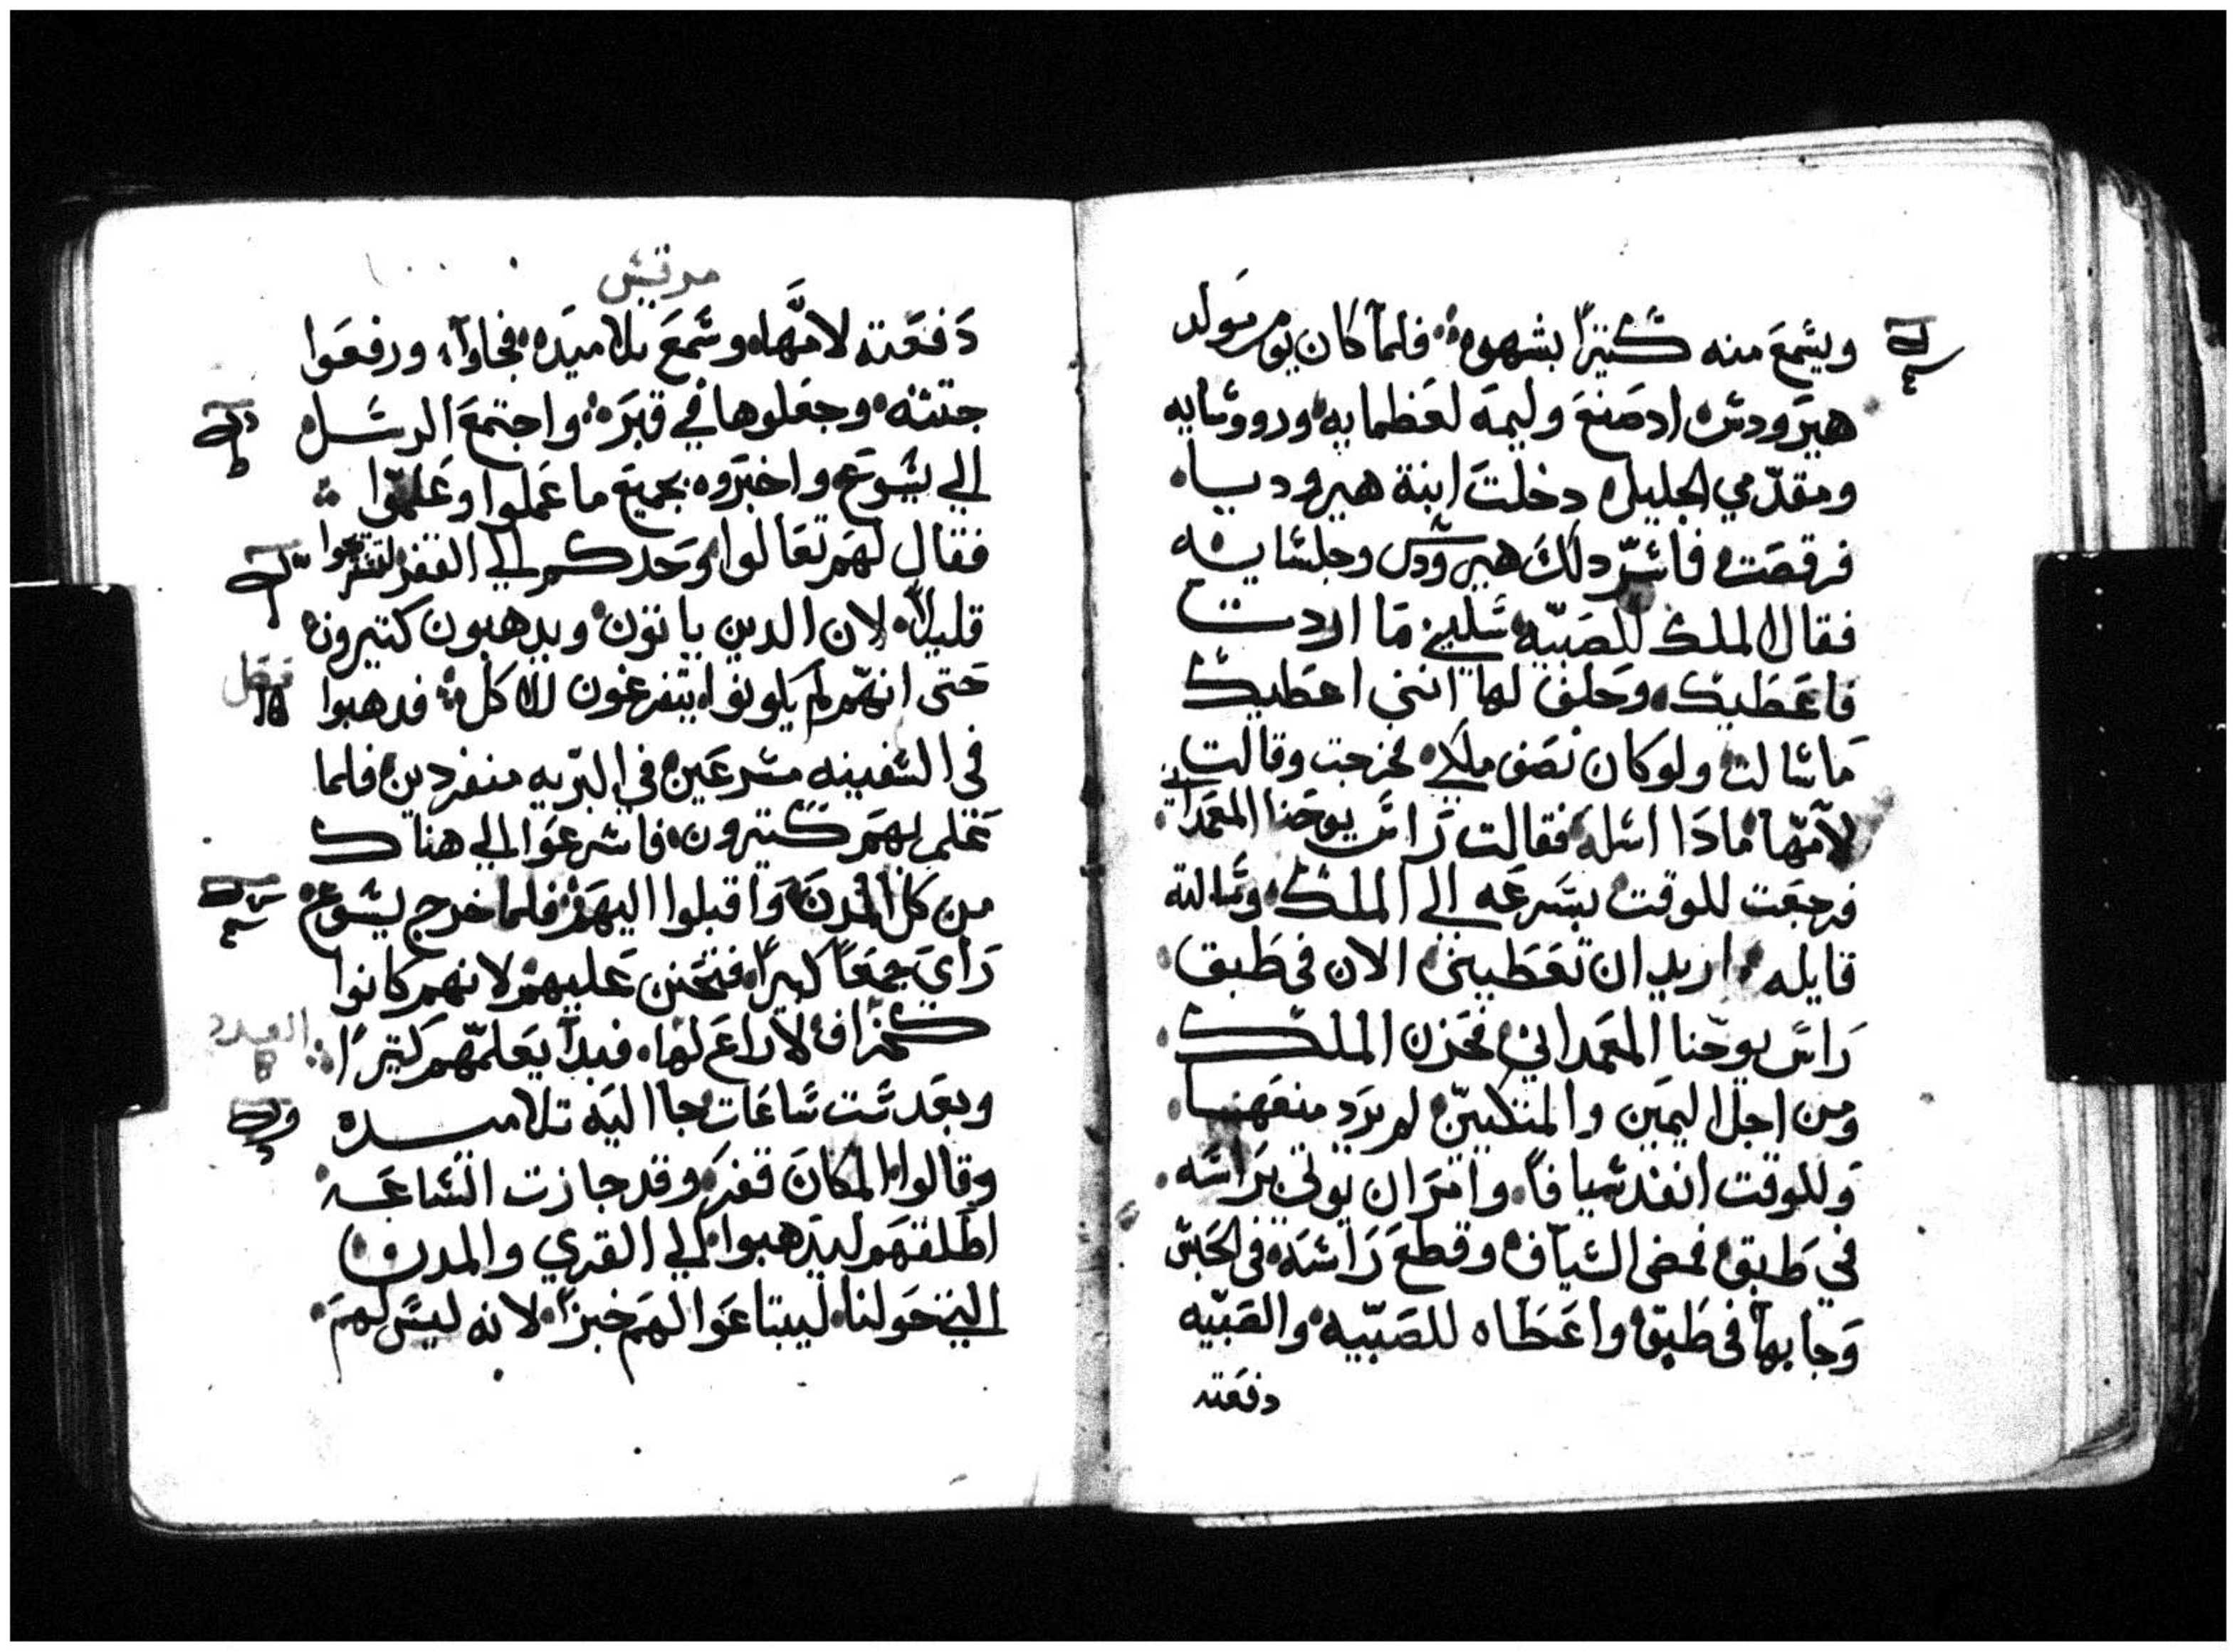 ويسمع منه كثيرًا بشهوه فلما كان يوم مولد
هيرودس اد صنع وليمه لعظمايه ورووسايه
ومقدّمي الجليل دخلت ابنة هيروديا
فرقصت فاسرّ دلك هيرودس وجلسايه
فقال الملك للصبيّه سليني ما اردت
فاعطيك وحلف لها انني اعطيك
ما سالت ولو كان نصف ملكي فخرجت وقالت
لامّها مادا اسله فقالت راس يوحنا المعمداني
فرجعت للوقت بسرعه الي الملك وسالته
قايله اريد ان تعطيني الان في طبق
راس يوحنا المعمداني فحزن الملك
ومن اجل اليمين والمتكيين لم يرد منعها
وللوقت انفد سيافًا وامر ان يوتي براسه
في طبق فمضي السياف وقطع راسه في الحبس
وجابها في طبق واعطاه للصبيّه والصبيّه
دفعته
مرقس
دفعته لامّها وسمع تلاميده فجاوا ورفعوا
جتته وجعلوها في قبره واجتمع الرسل
الي يسوع واخبروه بجميع ما عملوا وعلموا
فقال لهم تعالوا وحدكم الي القفر لتستريحوا
قليلًا لان الدين ياتون ويدهبون كتيرون
حتى انهّم لم يكونوا يتفرغون للاكل فدهبوا
فصل
في السفينه مسرعين في البرّيه منفردين فلما
علم بهم كتيرون فاسرعوا الي هناك
من كل المدن واقبلوا اليهم فلما خرج يسوع
راي جمعًا كبيرًا فتحنن عليهم لانهم كانوا
كخراف لا راع لها فبدا يعلمّهم كتيرًا
وبعد ست ساعات جا اليه تلاميده
وقالوا المكان قفر وقد جازت الساعه
اطلقهم ليدهبوا الي القري والمدن
التي حولنا ليبتاعوا لهم خبزًا لانه ليس لهم